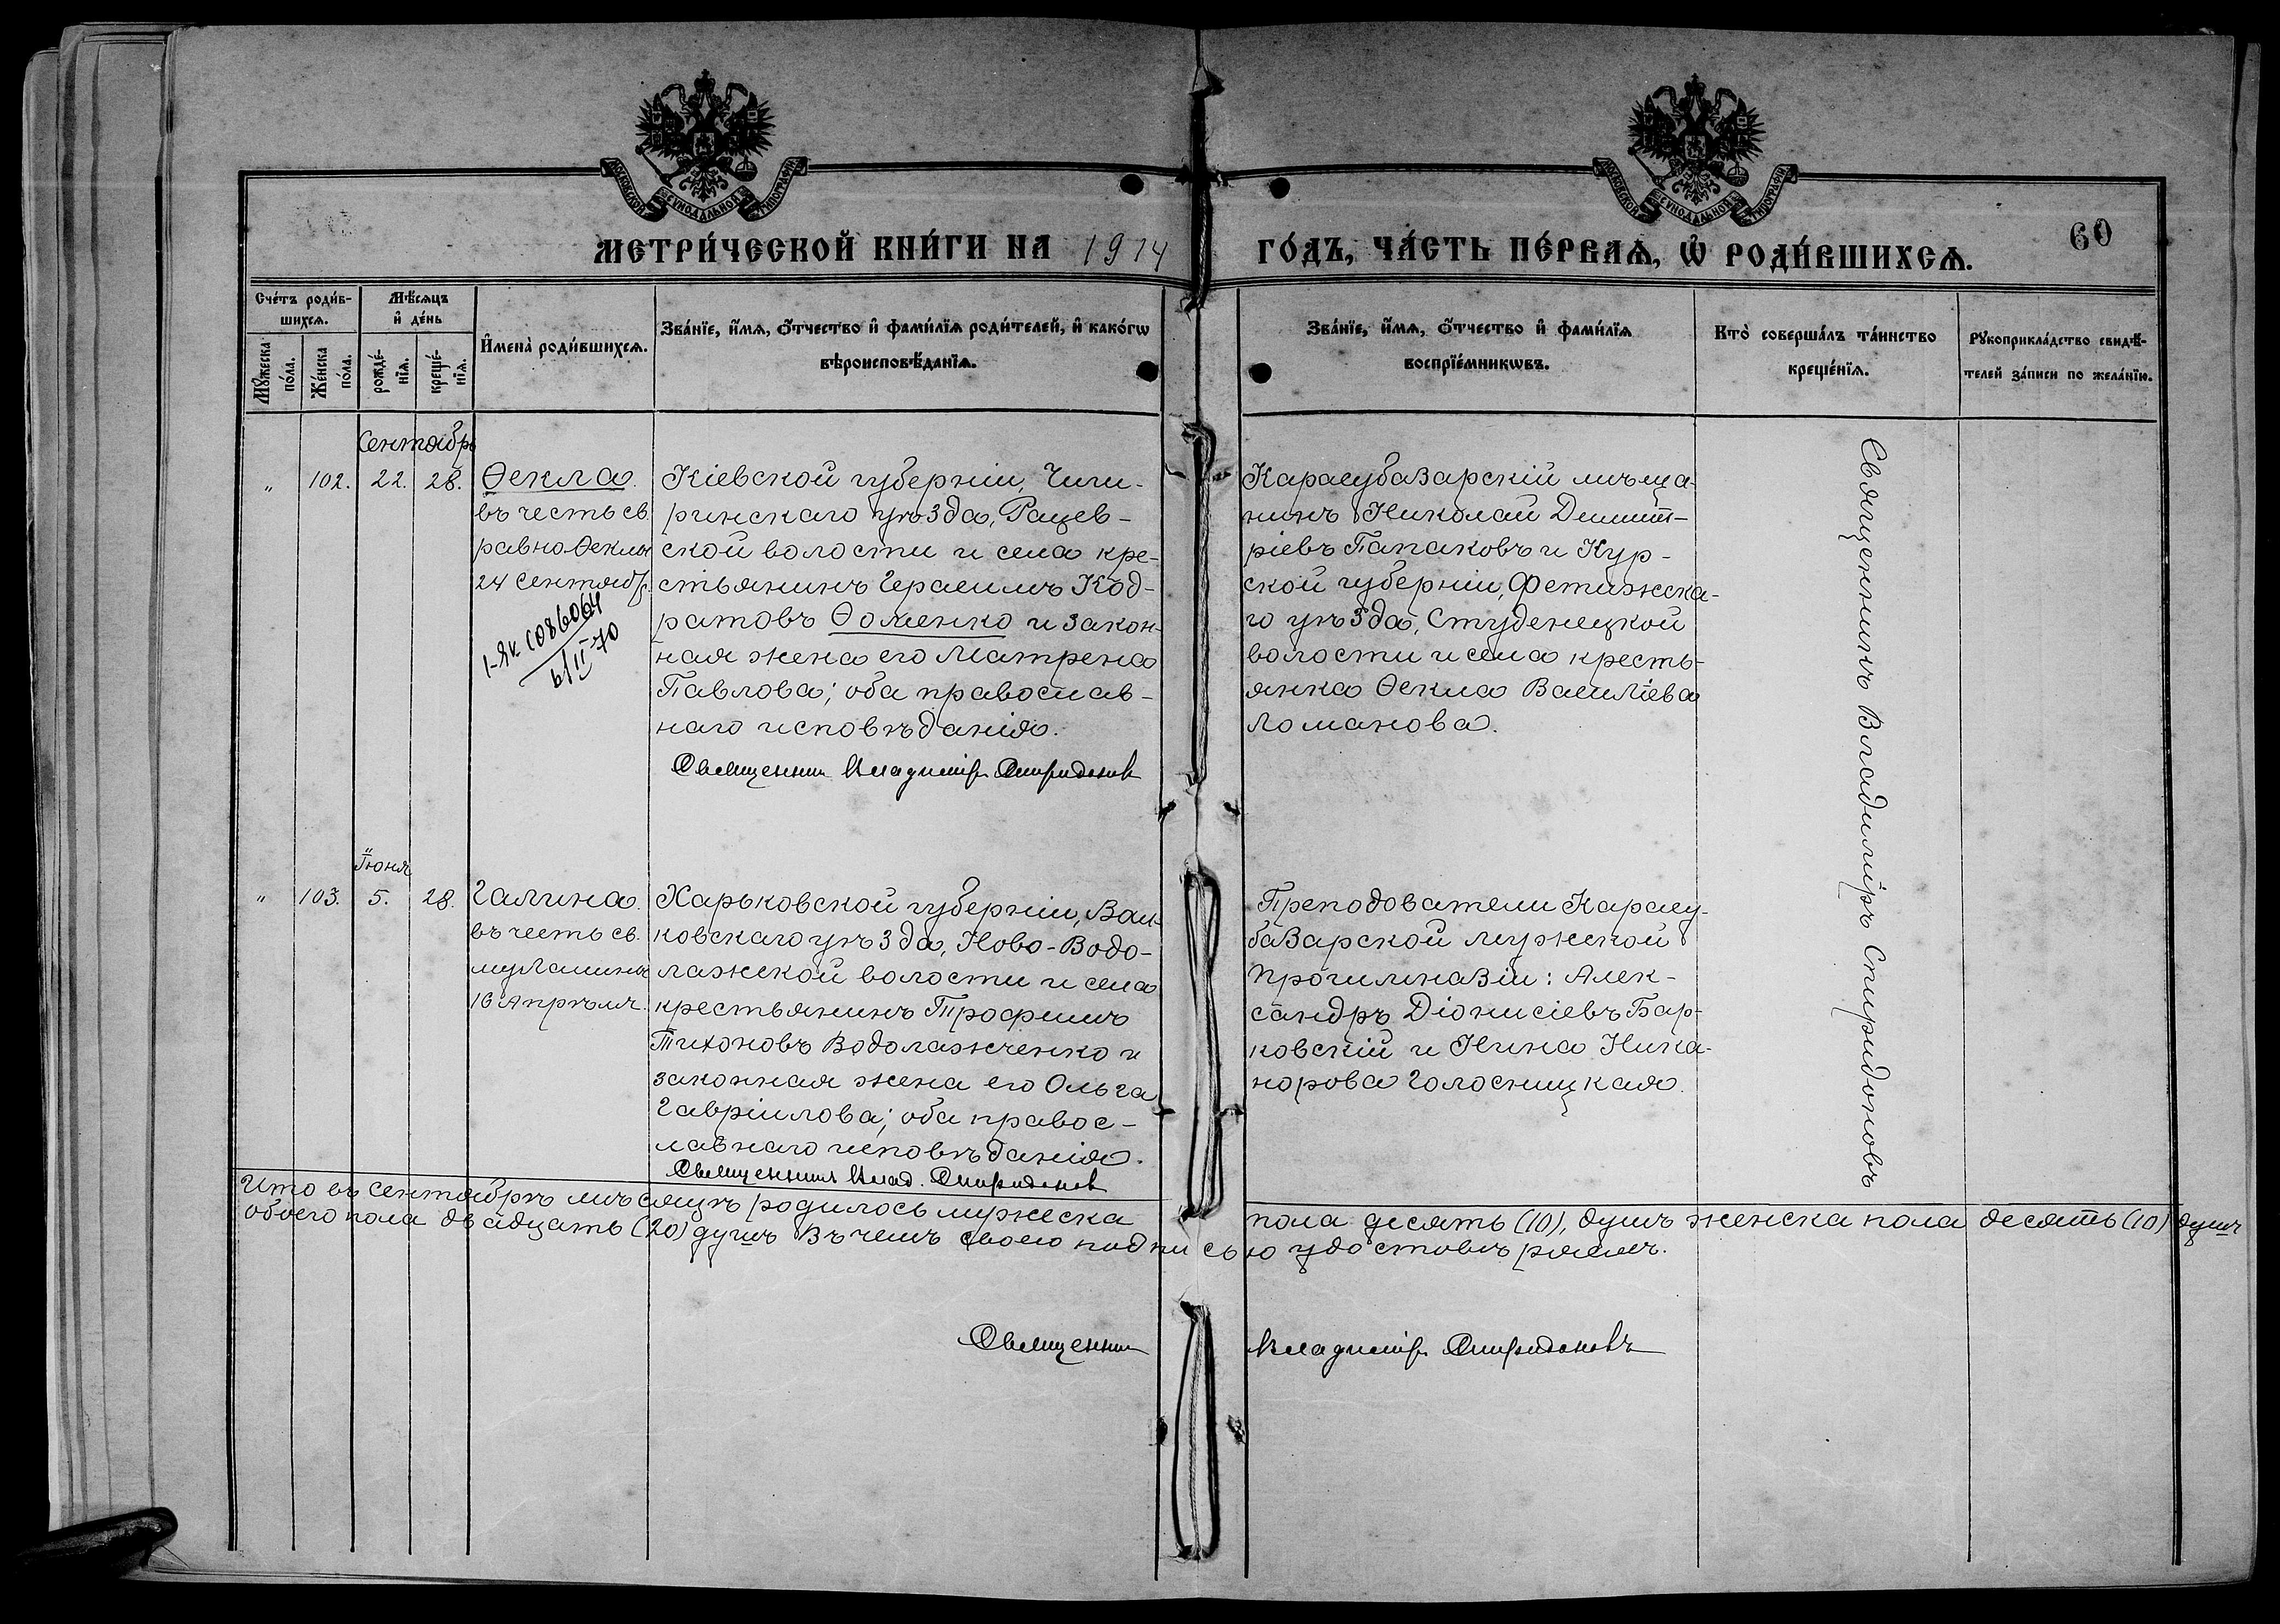 МОСКОВСКОЙ СѴНОДАЛЬНОЙ ТИПОГРАФІИ
МОСКОВСКОЙ СѴНОДАЛЬНОЙ ТИПОГРАФІИ
60
МЕТРИ́ЧЕСКОЙ КНИ́ГИ НА 1914 ГО́ДЪ, ЧА́СТЬ ПЕ́РВАѦ, Ѡ҆ РОДИ́ВШИХСѦ.
Сче́тъ роди́в-
шихсѧ.
Мѣ́сѧцъ
и҆ де́нь
Мꙋ́жеска
по́ла.
Же́нска
по́ла.
рожде́-
нїѧ.
креще́-
нїѧ.
И҆мена̀ роди́вшихсѧ.
Зва́нїе, и҆́мѧ, ѻ҆́тчество и҆ фами́лїѧ роди́телей, и҆ како́гѡ
вѣроисповѣ́данїѧ.
Зва́нїе, и҆́мѧ, ѻ҆́тчество и҆ фами́лїѧ
воспрїе́мникѡвъ.
Кто̀ соверша́лъ та́инство
креще́нїѧ.
Рꙋкоприкла́дство свидѣ́-
телей за́писи по жела́нїю.
Сентябрь
„ 102. 22. 28.
Ѳекла.
въ честь св.
равно Ѳеклы
24 Сентябр.
1-ЯК 6086064
Кіевской губерніи, Чиги-
ринскаго уѣзда, Рацев-
ской волости и села кре-
стьянинъ Герасимъ Код-
ратовъ Ѳоменко и закон-
ная жена его Матрена
Павлова; оба православ-
наго исповѣданія.
Священникъ Владиміръ Спиридоновъ
Карасубазарскій мѣща-
нинъ Николай Димит-
ріевъ Папаковъ и Кур-
ской губерніи, Фетижска-
го уѣзда, Студенецкой
волости и села кресть-
янка Ѳекла Василіева
Ломанова.
Священникъ Владиміръ Спиридоновъ
Іюня
„ 103. 5. 28.
Галина.
въ честь св.
муч Галины
16 Апрѣля.
Харьковской губерніи, Вал-
ковскаго уѣзда, Ново-Водо-
лажской волости и села
крестьянинъ Трофимъ
Тихоновъ Водолажченко и
законная жена его Ольга
Гавріилова; оба правос-
лавнаго исповѣданія.
Священникъ Влад. Спиридоновъ
Преподователи Карасу-
базарской мужской
Прогимназіи: Алек-
сандръ Діонисіевъ Бар-
ковскій и Нина Ника-
норова Голосницкая.
Что въ Сентябрѣ мѣсяцѣ родилось мужеска пола десять (10), душъ женска пола десять (10) душъ
обоего пола двадцать (20) душъ Въ чемъ своею подписью удостовѣряемъ.
Священникъ Владиміръ Спиридоновъ